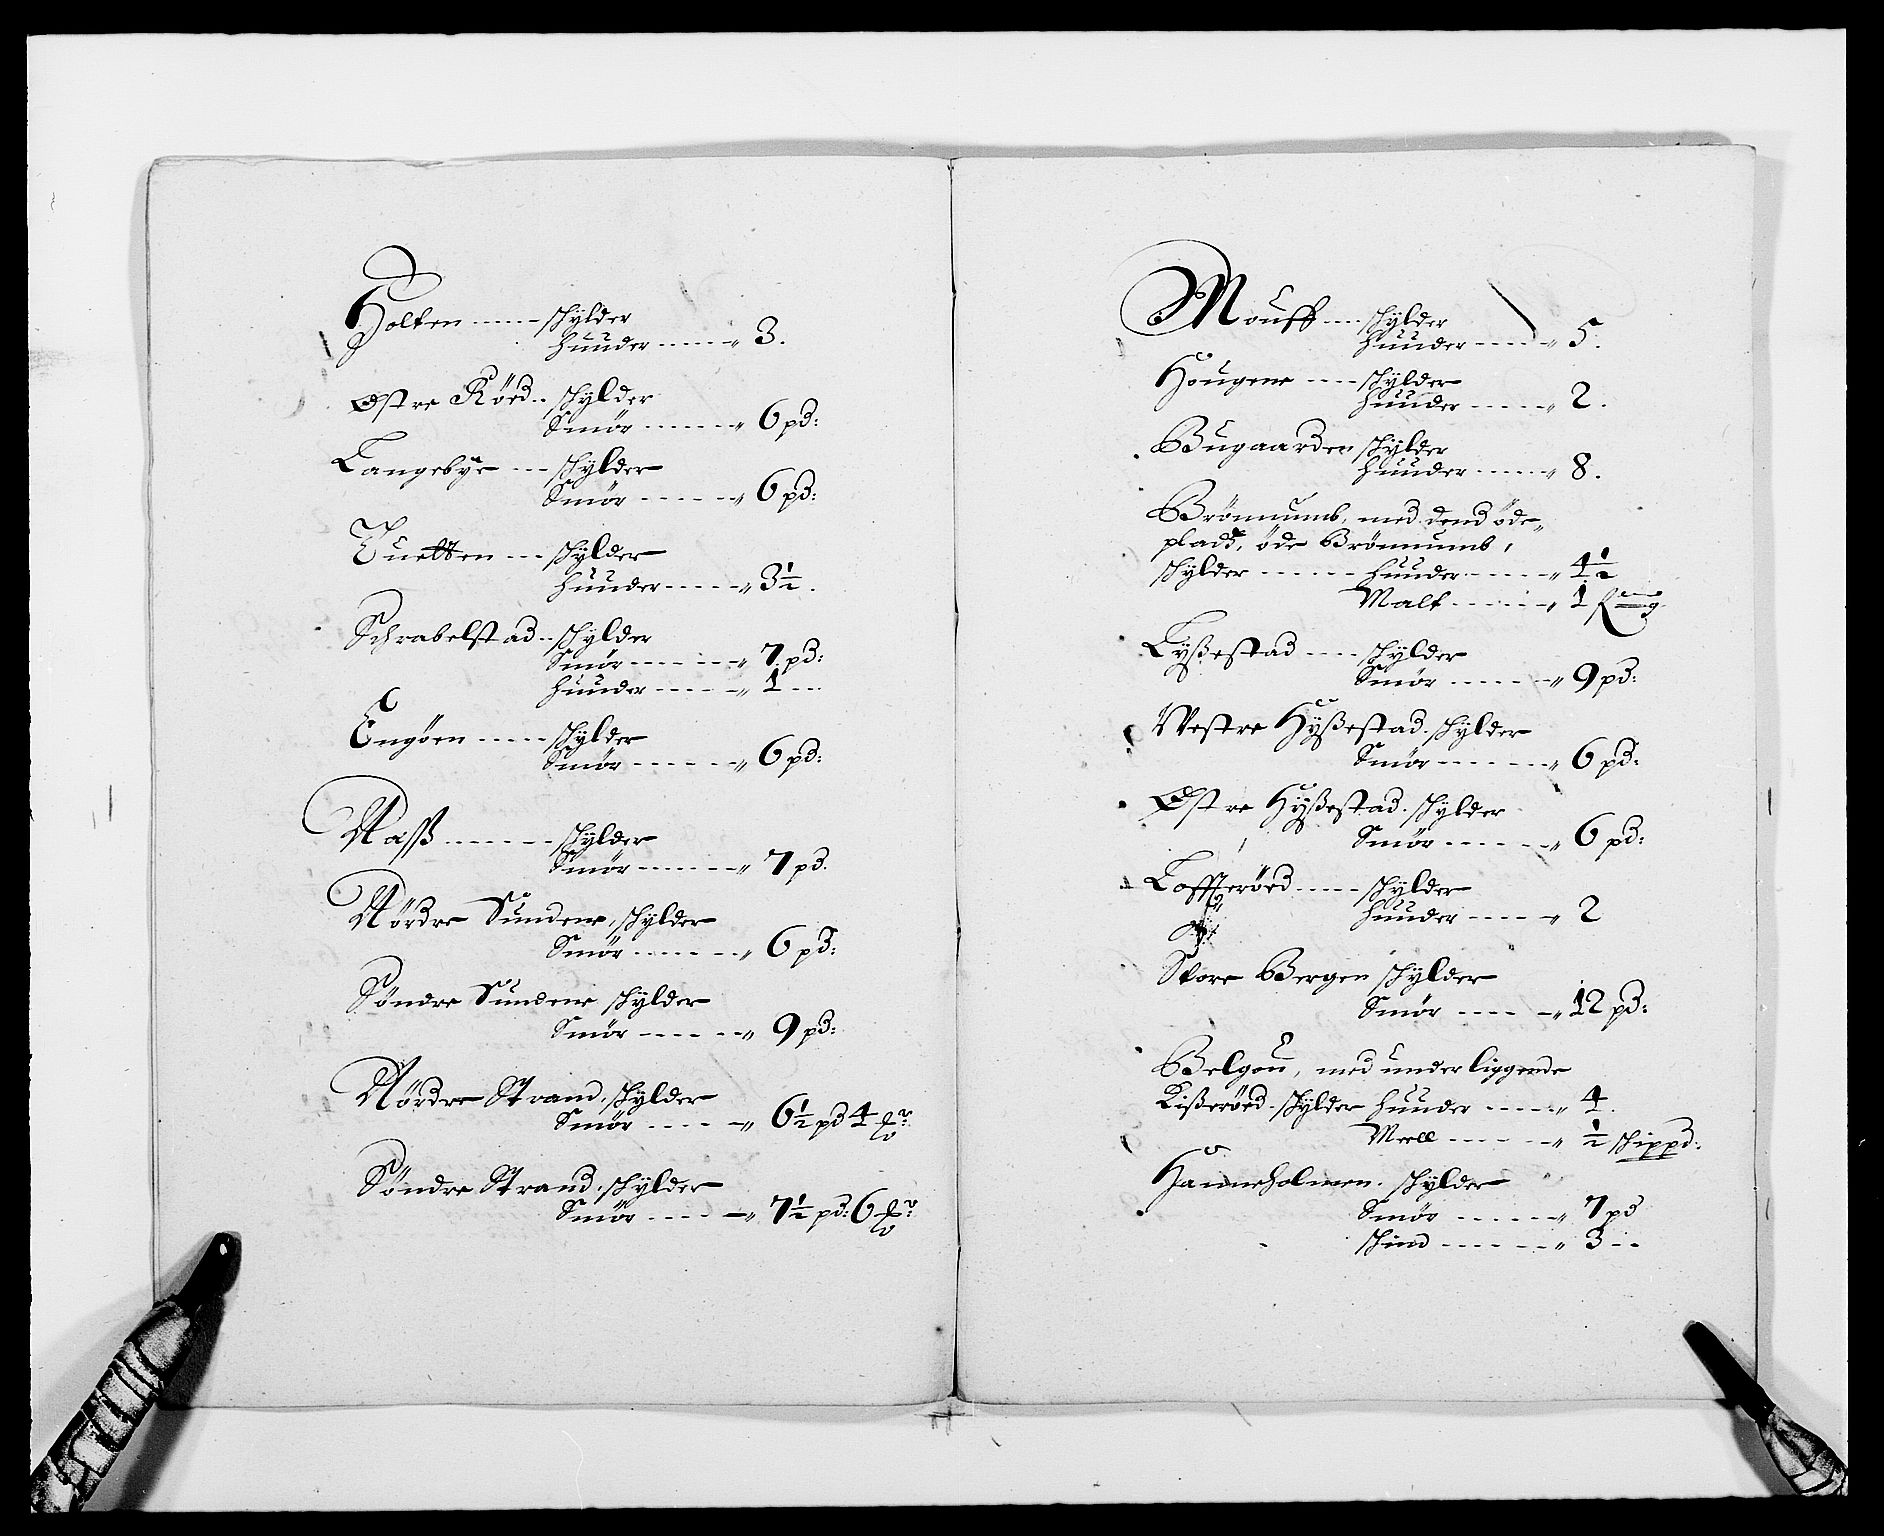 Holten ------ schylder
huuder ------ 3.
Østre Röed .. schylder
Smör ------- 6 pd:
Langebye --- schylder
Smör ------- 6 pd:
Tuetten --- schylder
huuder ----- 3½.
Schrabelstad .. schylder
Smör ------- 7. pd:
huuder ----- 1 ---
Engöen ----- schylder
Smör ------- 6 pd:
Naß ------- schylder
Smör ------- 7 pd.
Nördre Sundene, schylder
Smör ------- 6 pd:
Söndre Sundene schylder
Smör ------- 9 pd:
Nördre Strand. schylder
Smör ----- 6½ pd 4
Söndre Strand. schylder
Smör ----- 7½ pd: 6
Mouff --- schylder
huuder ----- 5.
Hougene ---- schylder
huuder ----- 2.
Bugaarden schylder
huuder ----- 8.
Brönnumb, med dend öde
pladtz, öde Brönnumb,
schylder ------ huuder ----- 4½
Malt ------ 1
Lyßestad ---- schylder
Smör ------ 9 pd:
Westre Hyßestad. schylder
Smör ------ 6 pd:
Østre Hyßestad. schylder
Smör ------ 6 pd:
Loffteröed ---- schylder
huuder ---- 2
Store Bergen schylder
Smör ---- 12 pd:
Belgou, med underliggende
Kißeröed. schylder huuder ---- 4.
Meell ----- ½ schippd:
Hauneholmen. schylder
Smör ----- 7 pd
schind ------ 3 --